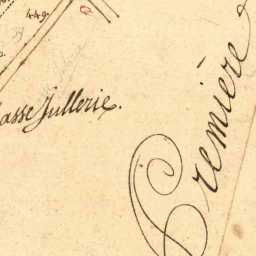 449.
asse Jullerie.
Première